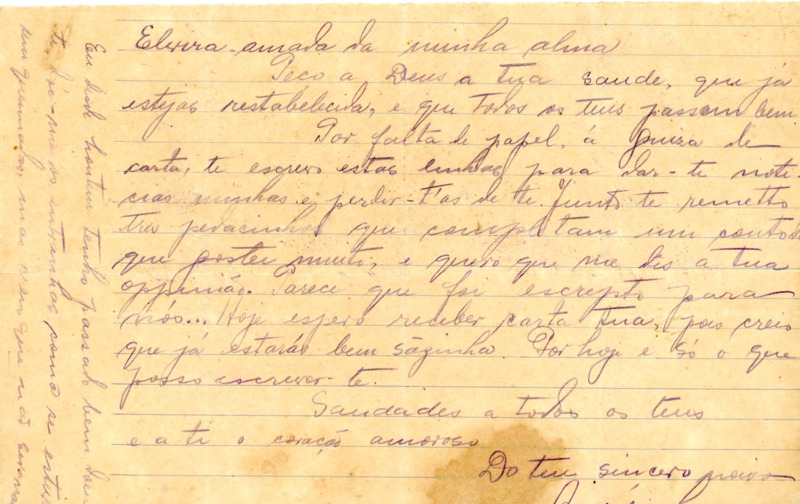 Elvira amada da minha alma
Peço a Deus a tua saude, que já
estejas restabelecida, e que todos os teus passem bem.
Por falta de papel, á guiza de
carta, te escrevo estas linhas para dar-te noti-
cias minhas e pedir-t'as de ti. Junto te remetto
tres pedacinhos que completam um conto
que gostei muito, e quero que me dis a tua
oppinião. Parece que foi escripto para
nós... Hoje espero receber carta tua, pois creio
que já estarás bem sãzinha. Por hoje é só o que
posso escrever-te.
Saudades a todos os teus
e a ti o coração amoroso
Do teu sincero noivo
Eu desde hontem tenho passado bem
me as entranhas como se
mas creio que não